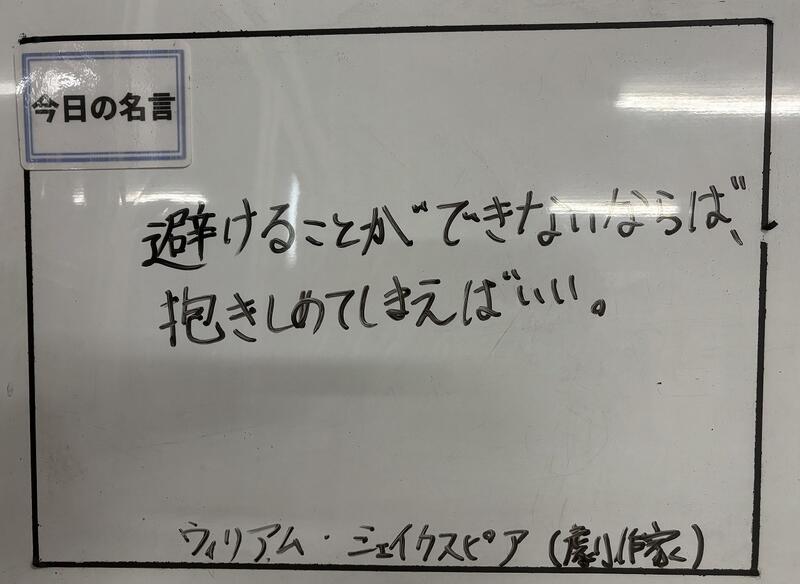 今日の名言
避けることができないならば、
抱きしめてしまえばいい。
ウィリアム・シェイクスピア(劇作家)